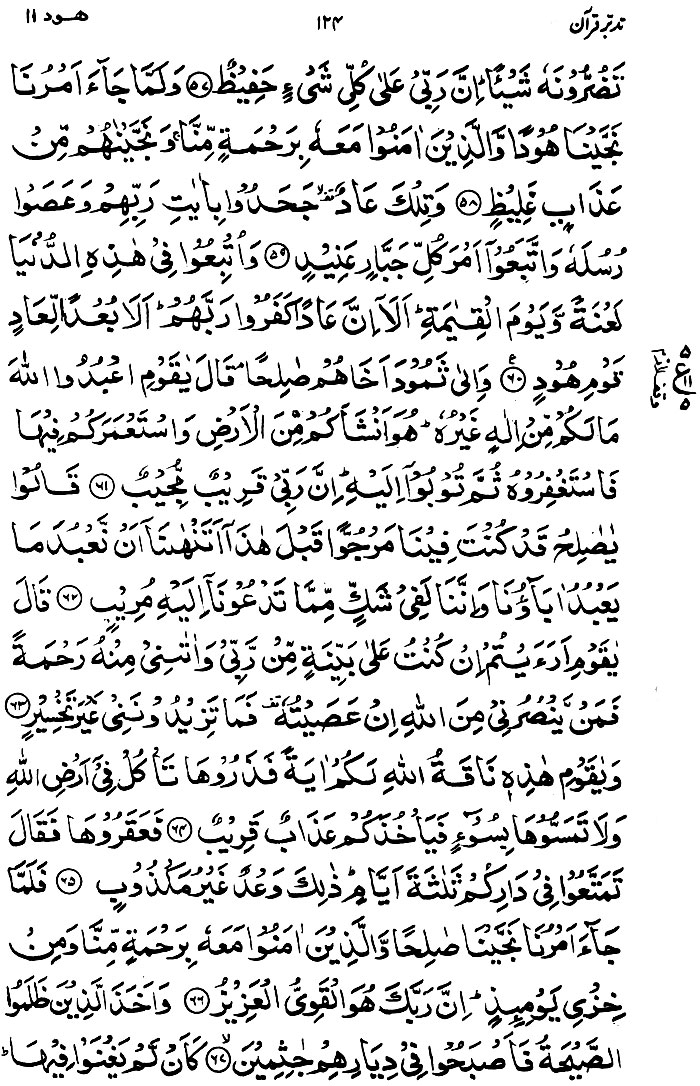 تدبرِ قرآن ۱۲۴ ھود ۱۱
تَضُرُّوْنَهٗ شَيْئًا ؕ اِنَّ رَبِّيْ عَلٰى كُلِّ شَيْءٍ حَفِيْظٌ ﴿۵۷﴾ وَلَمَّا جَآءَ اَمْرُنَا
نَجَّيْنَا هُوْدًا وَّالَّذِيْنَ اٰمَنُوْا مَعَهٗ بِرَحْمَةٍ مِّنَّا ۚ وَنَجَّيْنٰهُمْ مِّنْ
عَذَابٍ غَلِيْظٍ ﴿۵۸﴾ وَتِلْكَ عَادٌ ۟ۙ جَحَدُوْا بِاٰيٰتِ رَبِّهِمْ وَعَصَوْا
رُسُلَهٗ وَاتَّبَعُوْٓا اَمْرَ كُلِّ جَبَّارٍ عَنِيْدٍ ﴿۵۹﴾ وَاُتْبِعُوْا فِيْ هٰذِهِ الدُّنْيَا
لَعْنَةً وَّيَوْمَ الْقِيٰمَةِ ؕ اَلَآ اِنَّ عَادًا كَفَرُوْا رَبَّهُمْ ؕ اَلَا بُعْدًا لِّعَادٍ
قَوْمِ هُوْدٍ ﴿۶۰﴾ ع وَاِلٰى ثَمُوْدَ اَخَاهُمْ صٰلِحًا ۘ قَالَ يٰقَوْمِ اعْبُدُوا اللّٰهَ
مَا لَكُمْ مِّنْ اِلٰهٍ غَيْرُهٗ ؕ هُوَ اَنْشَاَكُمْ مِّنَ الْاَرْضِ وَاسْتَعْمَرَكُمْ فِيْهَا
فَاسْتَغْفِرُوْهُ ثُمَّ تُوْبُوْٓا اِلَيْهِ ؕ اِنَّ رَبِّيْ قَرِيْبٌ مُّجِيْبٌ ﴿۶۱﴾ قَالُوْا
يٰصٰلِحُ قَدْ كُنْتَ فِيْنَا مَرْجُوًّا قَبْلَ هٰذَآ اَتَنْهٰىنَآ اَنْ نَّعْبُدَ مَا
يَعْبُدُ اٰبَآؤُنَا وَاِنَّنَا لَفِيْ شَكٍّ مِّمَّا تَدْعُوْنَآ اِلَيْهِ مُرِيْبٍ ﴿۶۲﴾ قَالَ
يٰقَوْمِ اَرَءَيْتُمْ اِنْ كُنْتُ عَلٰى بَيِّنَةٍ مِّنْ رَّبِّيْ وَاٰتٰىنِيْ مِنْهُ رَحْمَةً
فَمَنْ يَّنْصُرُنِيْ مِنَ اللّٰهِ اِنْ عَصَيْتُهٗ ۟ فَمَا تَزِيْدُوْنَنِيْ غَيْرَ تَخْسِيْرٍ ﴿۶۳﴾
وَيٰقَوْمِ هٰذِهٖ نَاقَةُ اللّٰهِ لَكُمْ اٰيَةً فَذَرُوْهَا تَاْكُلْ فِيْٓ اَرْضِ اللّٰهِ
وَلَا تَمَسُّوْهَا بِسُوْٓءٍ فَيَاْخُذَكُمْ عَذَابٌ قَرِيْبٌ ﴿۶۴﴾ فَعَقَرُوْهَا فَقَالَ
تَمَتَّعُوْا فِيْ دَارِكُمْ ثَلٰثَةَ اَيَّامٍ ؕ ذٰلِكَ وَعْدٌ غَيْرُ مَكْذُوْبٍ ﴿۶۵﴾ فَلَمَّا
جَآءَ اَمْرُنَا نَجَّيْنَا صٰلِحًا وَّالَّذِيْنَ اٰمَنُوْا مَعَهٗ بِرَحْمَةٍ مِّنَّا وَمِنْ
خِزْيِ يَوْمِئِذٍ ؕ اِنَّ رَبَّكَ هُوَ الْقَوِيُّ الْعَزِيْزُ ﴿۶۶﴾ وَاَخَذَ الَّذِيْنَ ظَلَمُوا
الصَّيْحَةُ فَاَصْبَحُوْا فِيْ دِيَارِهِمْ جٰثِمِيْنَ ﴿۶۷﴾ كَاَنْ لَّمْ يَغْنَوْا فِيْهَا ؕ